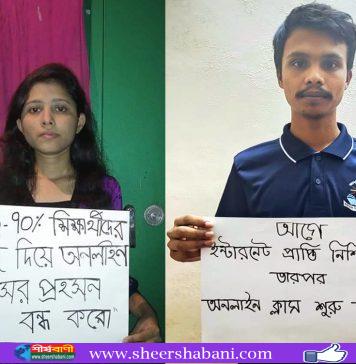 -৭০% শিক্ষার্থীদের
দিয়ে অনলাইন
প্রহসন
বন্ধ করো"
আগে
ইন্টারনেট প্রাপ্তি নিশ্চি
তারপর
অনলাইন ক্লাস শুরু -
শীর্ষবাণী
sheershabani.com
www.sheershabani.com